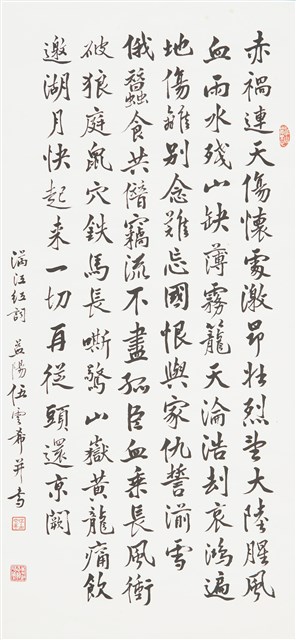 赤禍連天傷懷處激昂壯烈望大陸腥風
血雨水殘山缺薄霧籠天淪浩刦哀鴻遍
地傷離別念難忘國恨與家仇誓湔雪
俄蠶食共僭竊流不盡孤臣血乘長風衝
破狼庭鼠穴鉄馬長嘶驚山嶽黃龍痛飲
邀湖月快起来一切再從頭還京闕
滿江紅詞 益陽伍雲希并書